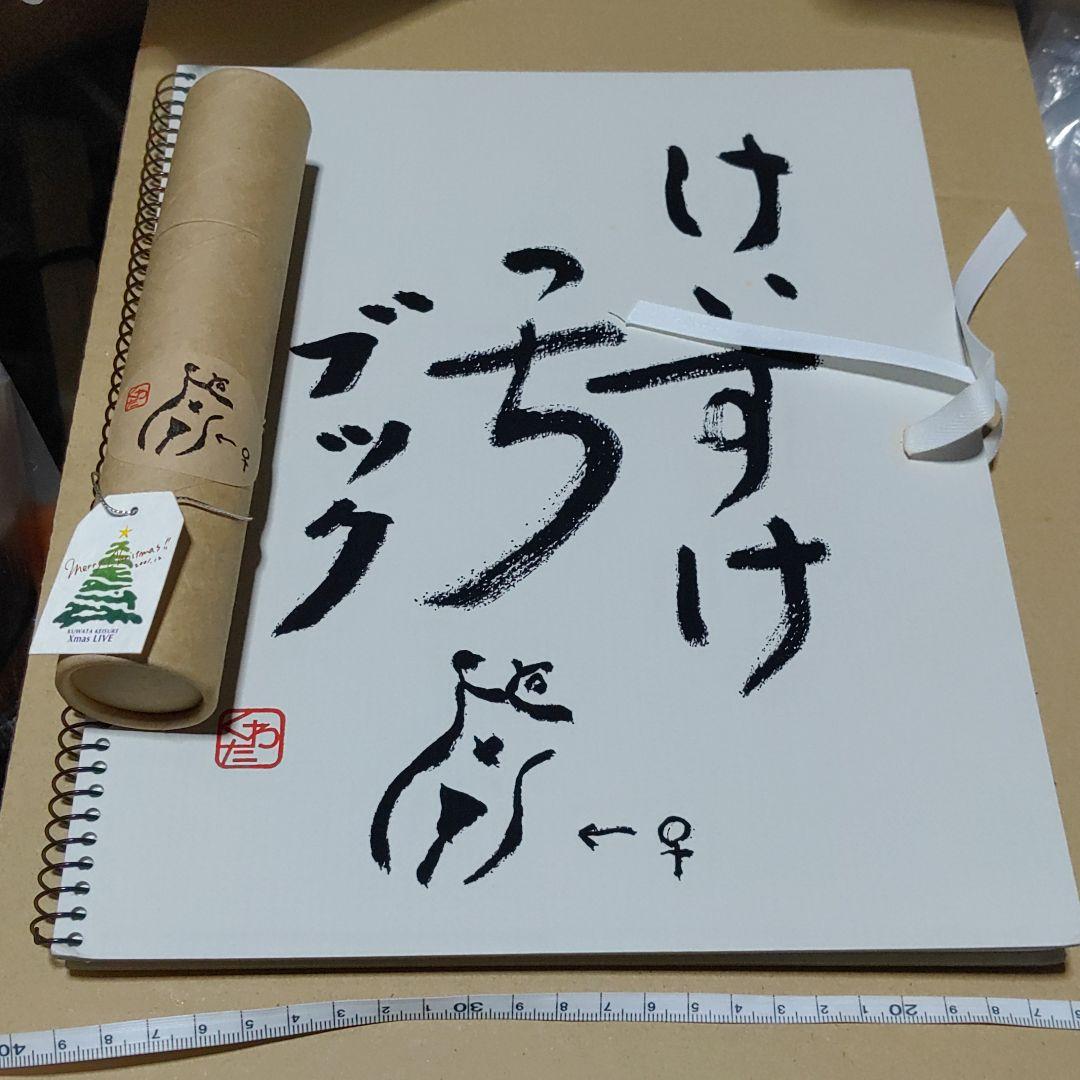 けいすけ
っち
ブック
くわた
← ♀
くわた
← ♀
Merry Christmas!!
2001.12
KUWATA KEISUKE
Xmas LIVE
40 9 8 7 6 5 4 3 2 1 30 9 8 7 6 5 4 3 2 1 20 9 8 7